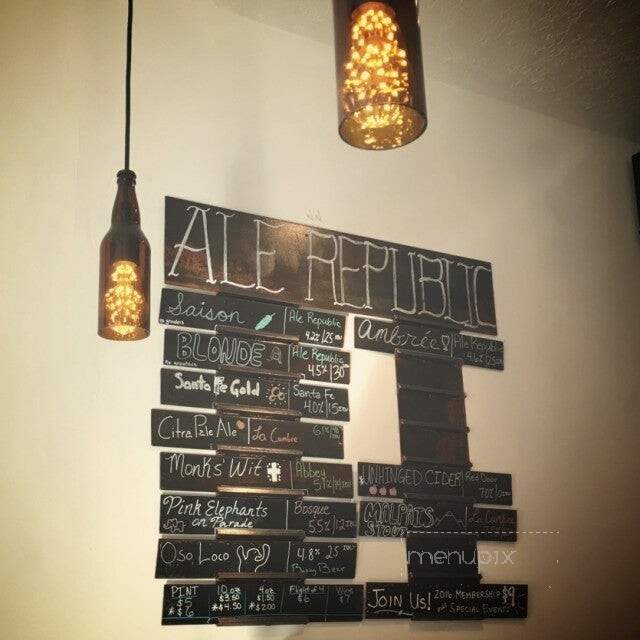 ALE REPUBLIC
Saison Ale Republic
4.2%/25 IBU
BLONDE Ale Republic
4.5%/30 IBU
Santa Fe Gold Santa Fe
4.0%/15 IBU
Citra Pale Ale La Cumbre
Monks' Wit Abbey
5.1%/14 IBU
Pink Elephants Bosque
on Parade 5.5%/12 IBU
Oso Loco 4.8% 25 IBU
Busy Bear
PINT 10oz 4oz Flight of 4
$5 $3.50 $1.50 $6 $7
*$6 *$4.50 *$2.00
Ambrée Ale Republic
4.6%/25 IBU
UNHINGED CIDER Red Door
7.0% 0 IBU
MALPAIS La Cumbre
STOUT
JOIN US! 2016 MEMBERSHIP $9
SPECIAL EVENTS
menupix